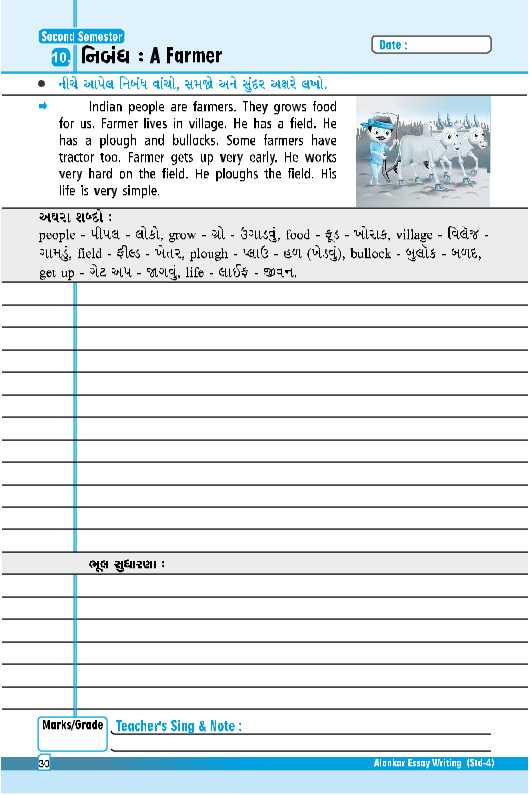 Second Semester
10. નિબંધ : A Farmer
Date :
● નીચે આપેલ નિબંધ વાંચો, સમજો અને સુંદર અક્ષરે લખો.
➡ Indian people are farmers. They grows food
for us. Farmer lives in village. He has a field. He
has a plough and bullocks. Some farmers have
tractor too. Farmer gets up very early. He works
very hard on the field. He ploughs the field. His
life is very simple.
અઘરા શબ્દો :
people - પીપલ - લોકો, grow - ગ્રો - ઉગાડવું, food - ફૂડ - ખોરાક, village - વિલેજ -
ગામડું, field - ફીલ્ડ - ખેતર, plough - પ્લાઉ - હળ (ખેડવું), bullock - બુલોક - બળદ,
get up - ગેટ અપ - જાગવું, life - લાઈફ - જીવન.
ભૂલ સુધારણા :
Marks/Grade
Teacher's Sing & Note :
30
Alankar Essay Writing (Std-4)